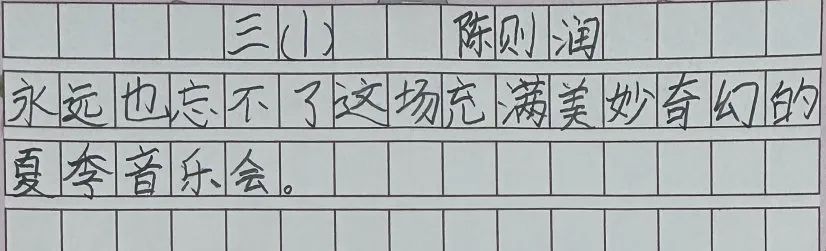 三(1) 陈则润
永远也忘不了这场充满美妙奇幻的
夏季音乐会。